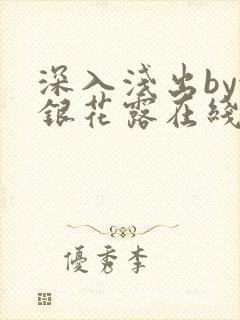 深入浅出by
銀花露在綫
優秀李